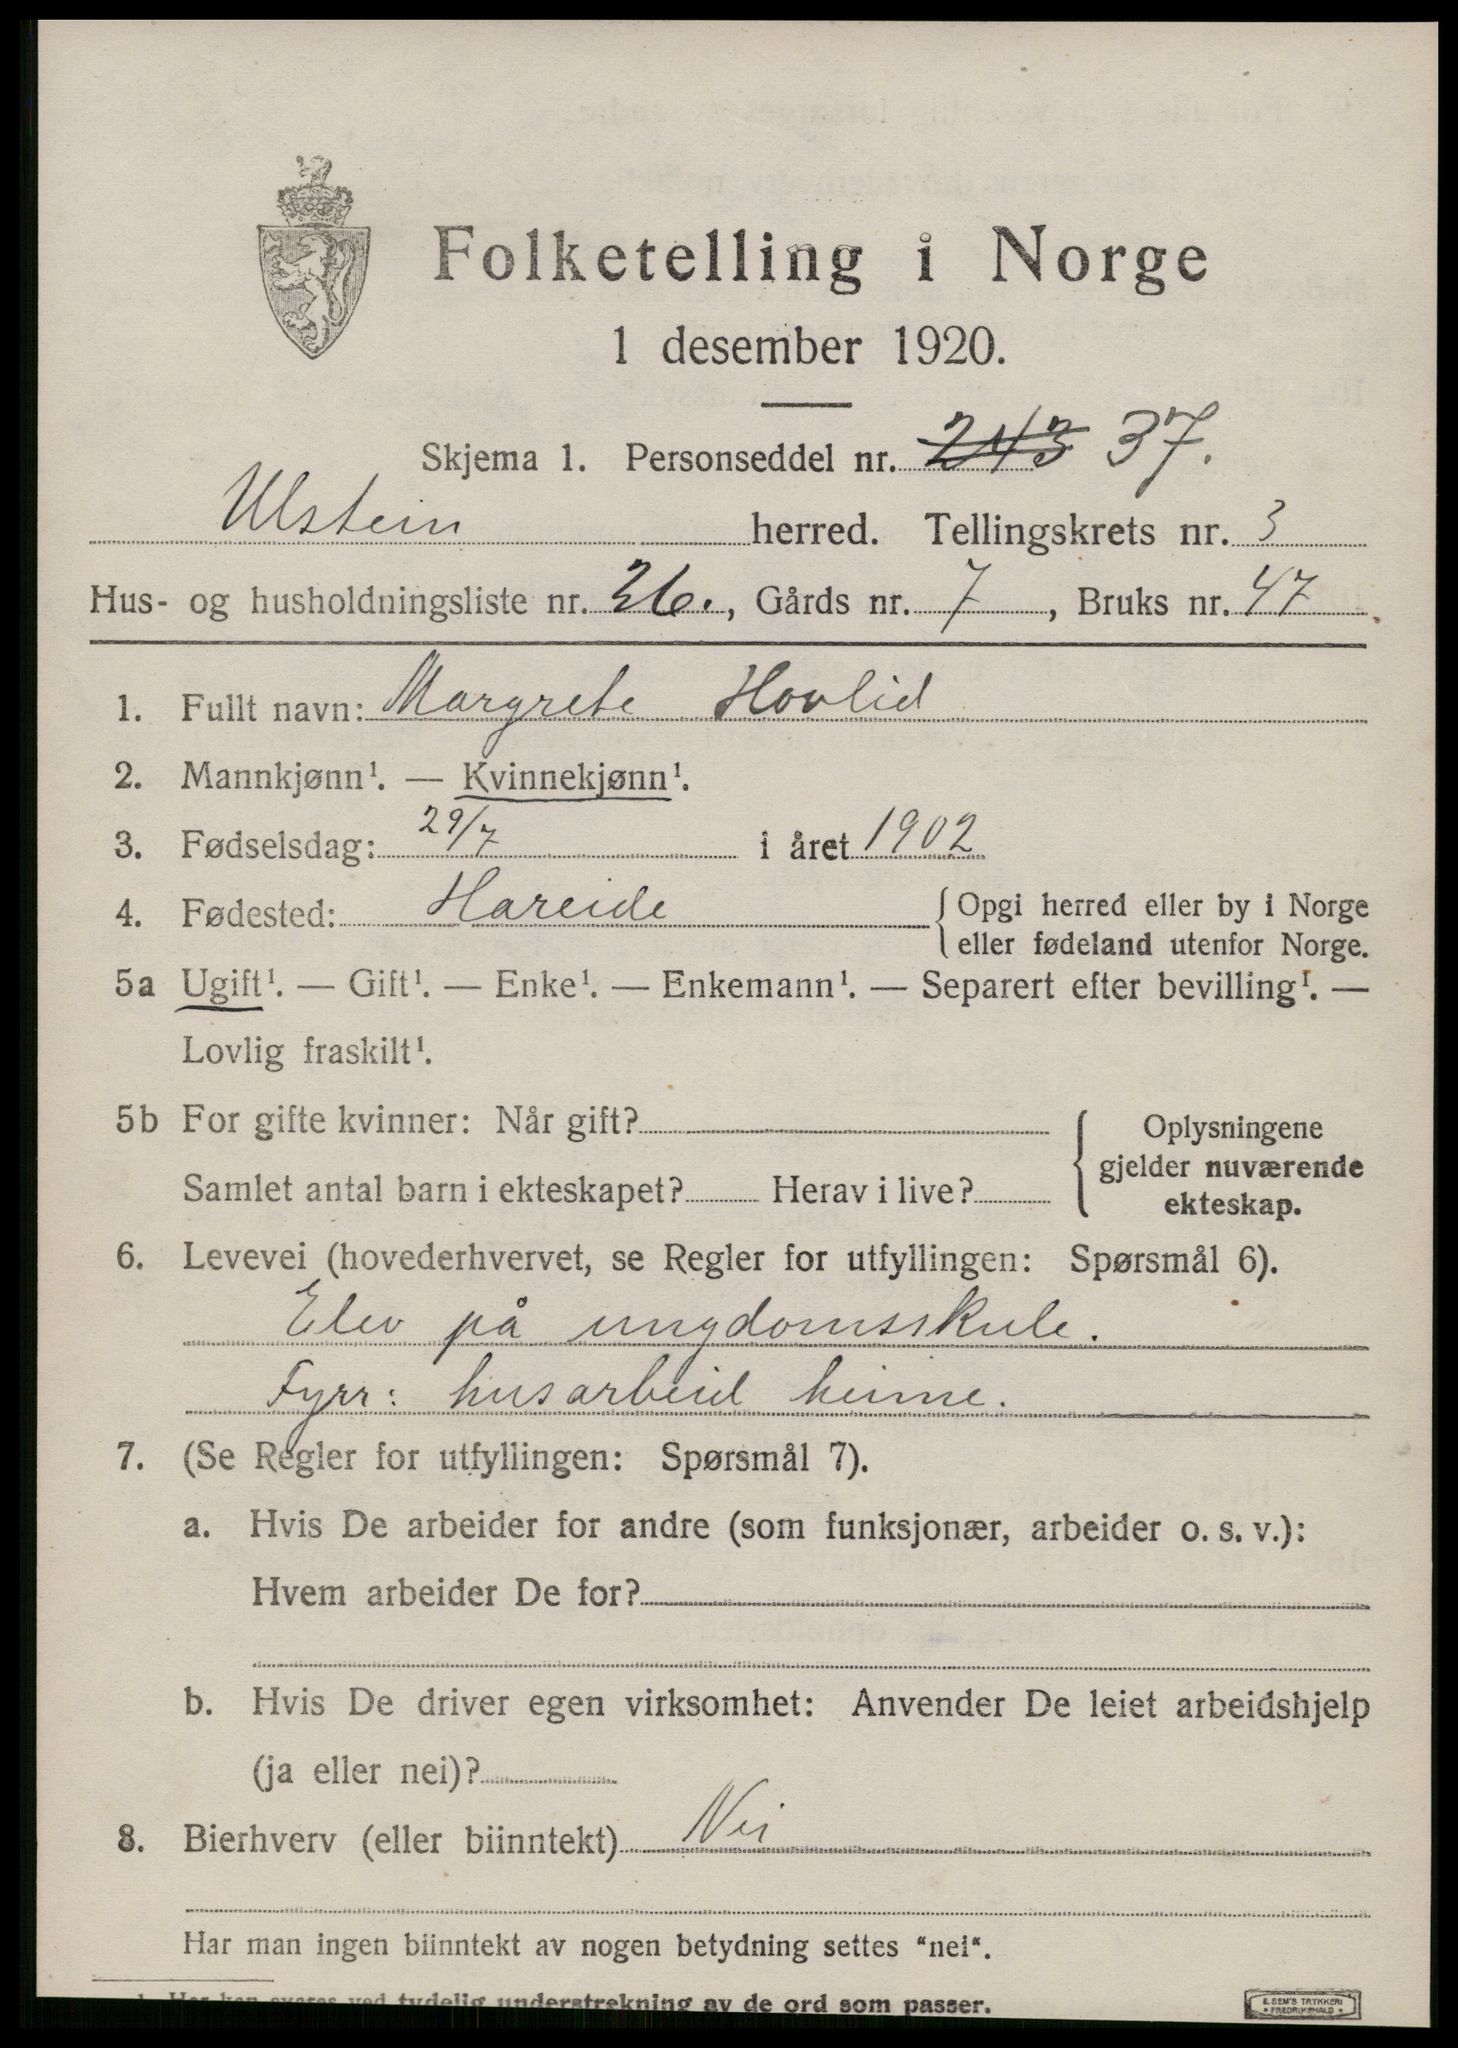 Folketelling i Norge
1 desember 1920.
Skjema 1. Personseddel nr. 243 37.
Ulstein herred. Tellingskrets nr. 3
Hus- og husholdningsliste nr. 26., Gårds nr. 7, Bruks nr. 47
1. Fullt navn: Margrete Hovlid
2. Mannkjønn¹. — Kvinnekjønn¹.
3. Fødselsdag: 29/7 i året 1902
4. Fødested: Hareide { Opgi herred eller by i Norge
eller fødeland utenfor Norge.
5a Ugift¹. — Gift¹. — Enke¹. — Enkemann¹. — Separert efter bevilling¹. —
Lovlig fraskilt¹.
5b For gifte kvinner: Når gift?
Samlet antal barn i ekteskapet? Herav i live?
{ Oplysningene
gjelder nuværende
ekteskap.
6. Levevei (hovederhvervet, se Regler for utfyllingen: Spørsmål 6).
Elev på ungdomsskule.
Fyrr: husarbeid heime.
7. (Se Regler for utfyllingen: Spørsmål 7).
a. Hvis De arbeider for andre (som funksjonær, arbeider o. s. v.):
Hvem arbeider De for?
b. Hvis De driver egen virksomhet: Anvender De leiet arbeidshjelp
(ja eller nei)?
8. Bierhverv (eller biinntekt) Nei
Har man ingen biinntekt av nogen betydning settes "nei".
1 Her kan svares ved tydelig understrekning av de ord som passer.
E. SEM'S TRYKKERI
FREDRIKSHALD